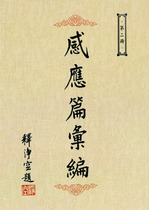 第二冊
感應篇彙編
釋淨空題